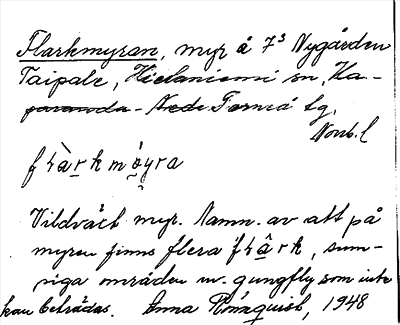 Flarkmyran, myr å 7³ Nygården
Taipale, Hietaniemi sn, Ha-
paranda - Nedr. Torneå tg,
Norrb. l
Vildväxt myr. Namn. av att på
myren finns flera flark, sum-
piga områden m. gungfly som inte
kan beträdas. Anna Rönnquist, 1948